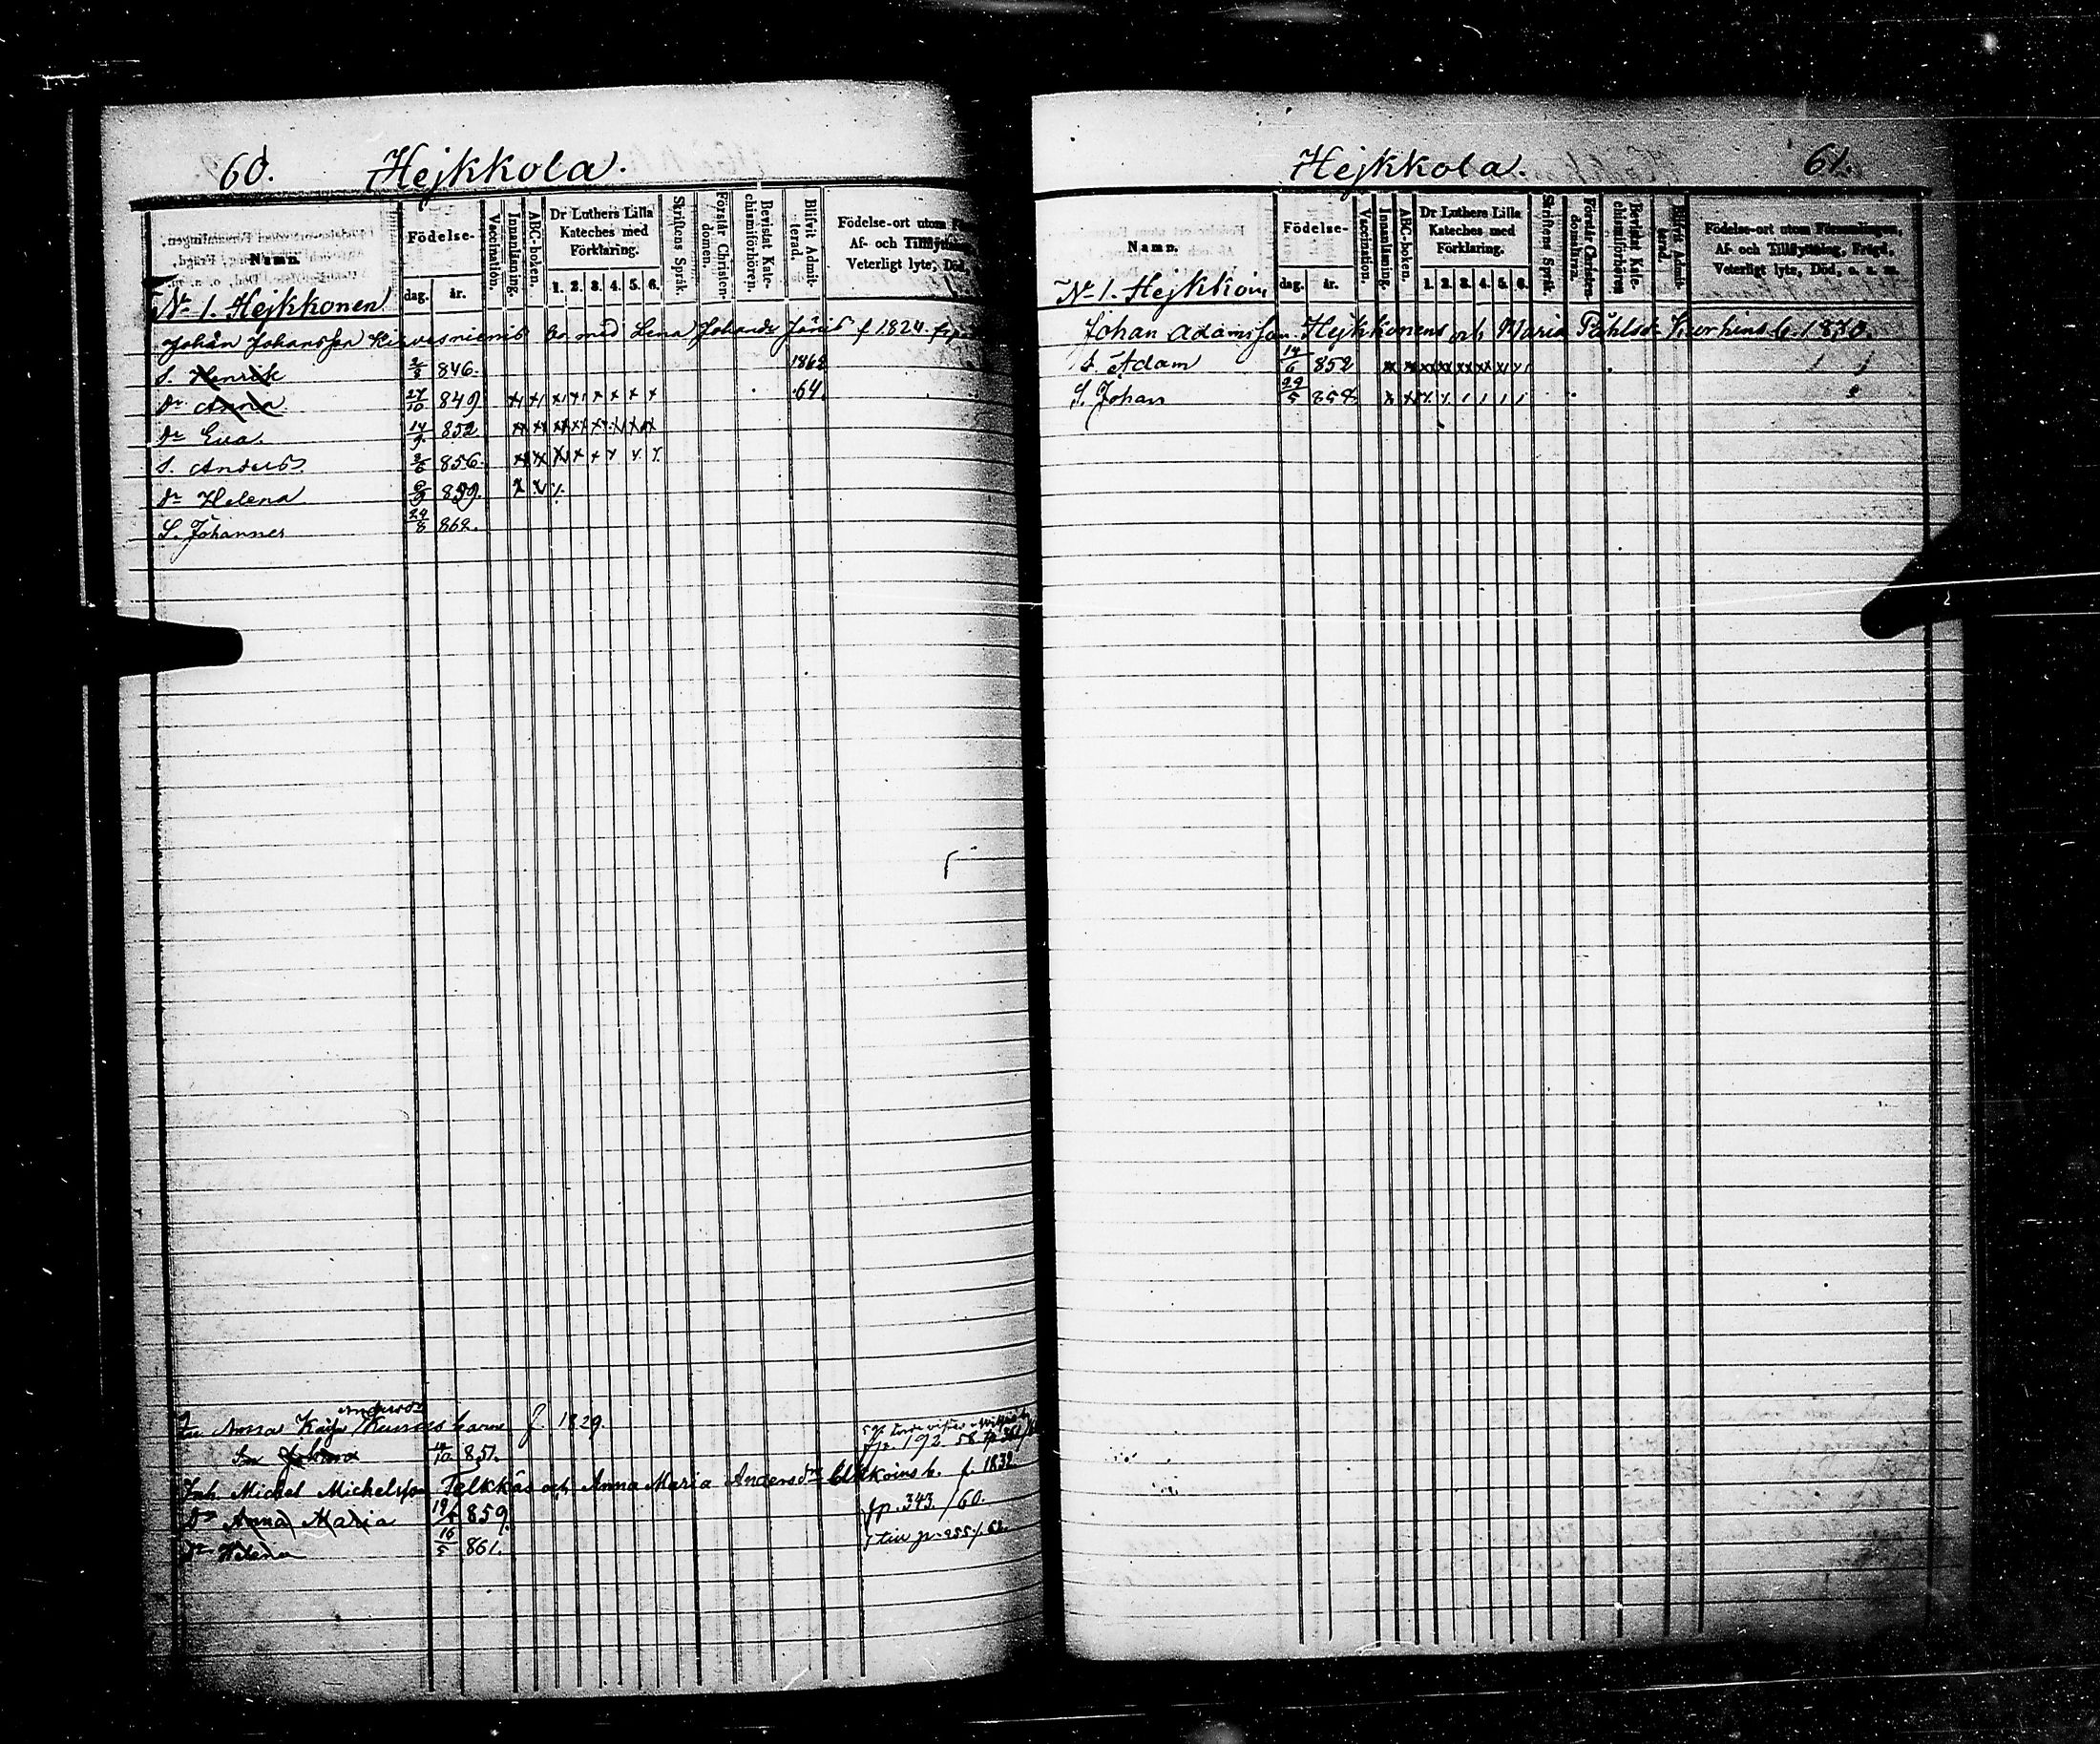 60. Hejkkola.
Namn.
Födelse-
dag. år.
Vaccination.
Innanläsning.
ABC-boken.
Dr Luthers Lilla Kateches med Förklaring.
1. 2. 3. 4. 5. 6.
Skriftens Språk.
Förstår Christendomen
Bevistat Katechismiförhören.
Blifvit Admitterad.
Födelse-ort utom
Af- och Tillflyttning
Veterligt lyte, Död,
No 1. Hejkkonen
Johan Johansson med Lena Johansdr f 1824
S. Henrik 846. 1862
dr Anna 27/10 849 64.
dr Eva. 14/9 852
S. Anders 856.
dr Helena 859.
S. Johannes 29/8 862.
Anna f. 1829.
10 851. 192
Inh Michel Michelsson och Anna Maria Andersdr f. 1832
dr Anna Maria 19/ 859 fp. 343. /60.
dr Helena 16/5 861.
Hejkkola. 61.
Namn.
Födelse-
dag. år.
Vaccination.
Innanläsning.
ABC-boken.
Dr Luthers Lilla Kateches med Förklaring.
1. 2. 3. 4. 5. 6.
Skriftens Språk.
Förstår Christendomsläran.
Bevistat Katechismiförhören
Blifvit Admitterad.
Födelse-ort utom Församlingen,
Af- och Tillflyttning, Frägd,
Veterligt lyte, Död, o. s. m.
No 1. Hejkkoin
Johan Adamsson Hejkkonens och Maria Påhlsdr 1870.
S Adam 14/6 852
S. Johan 29/5 858